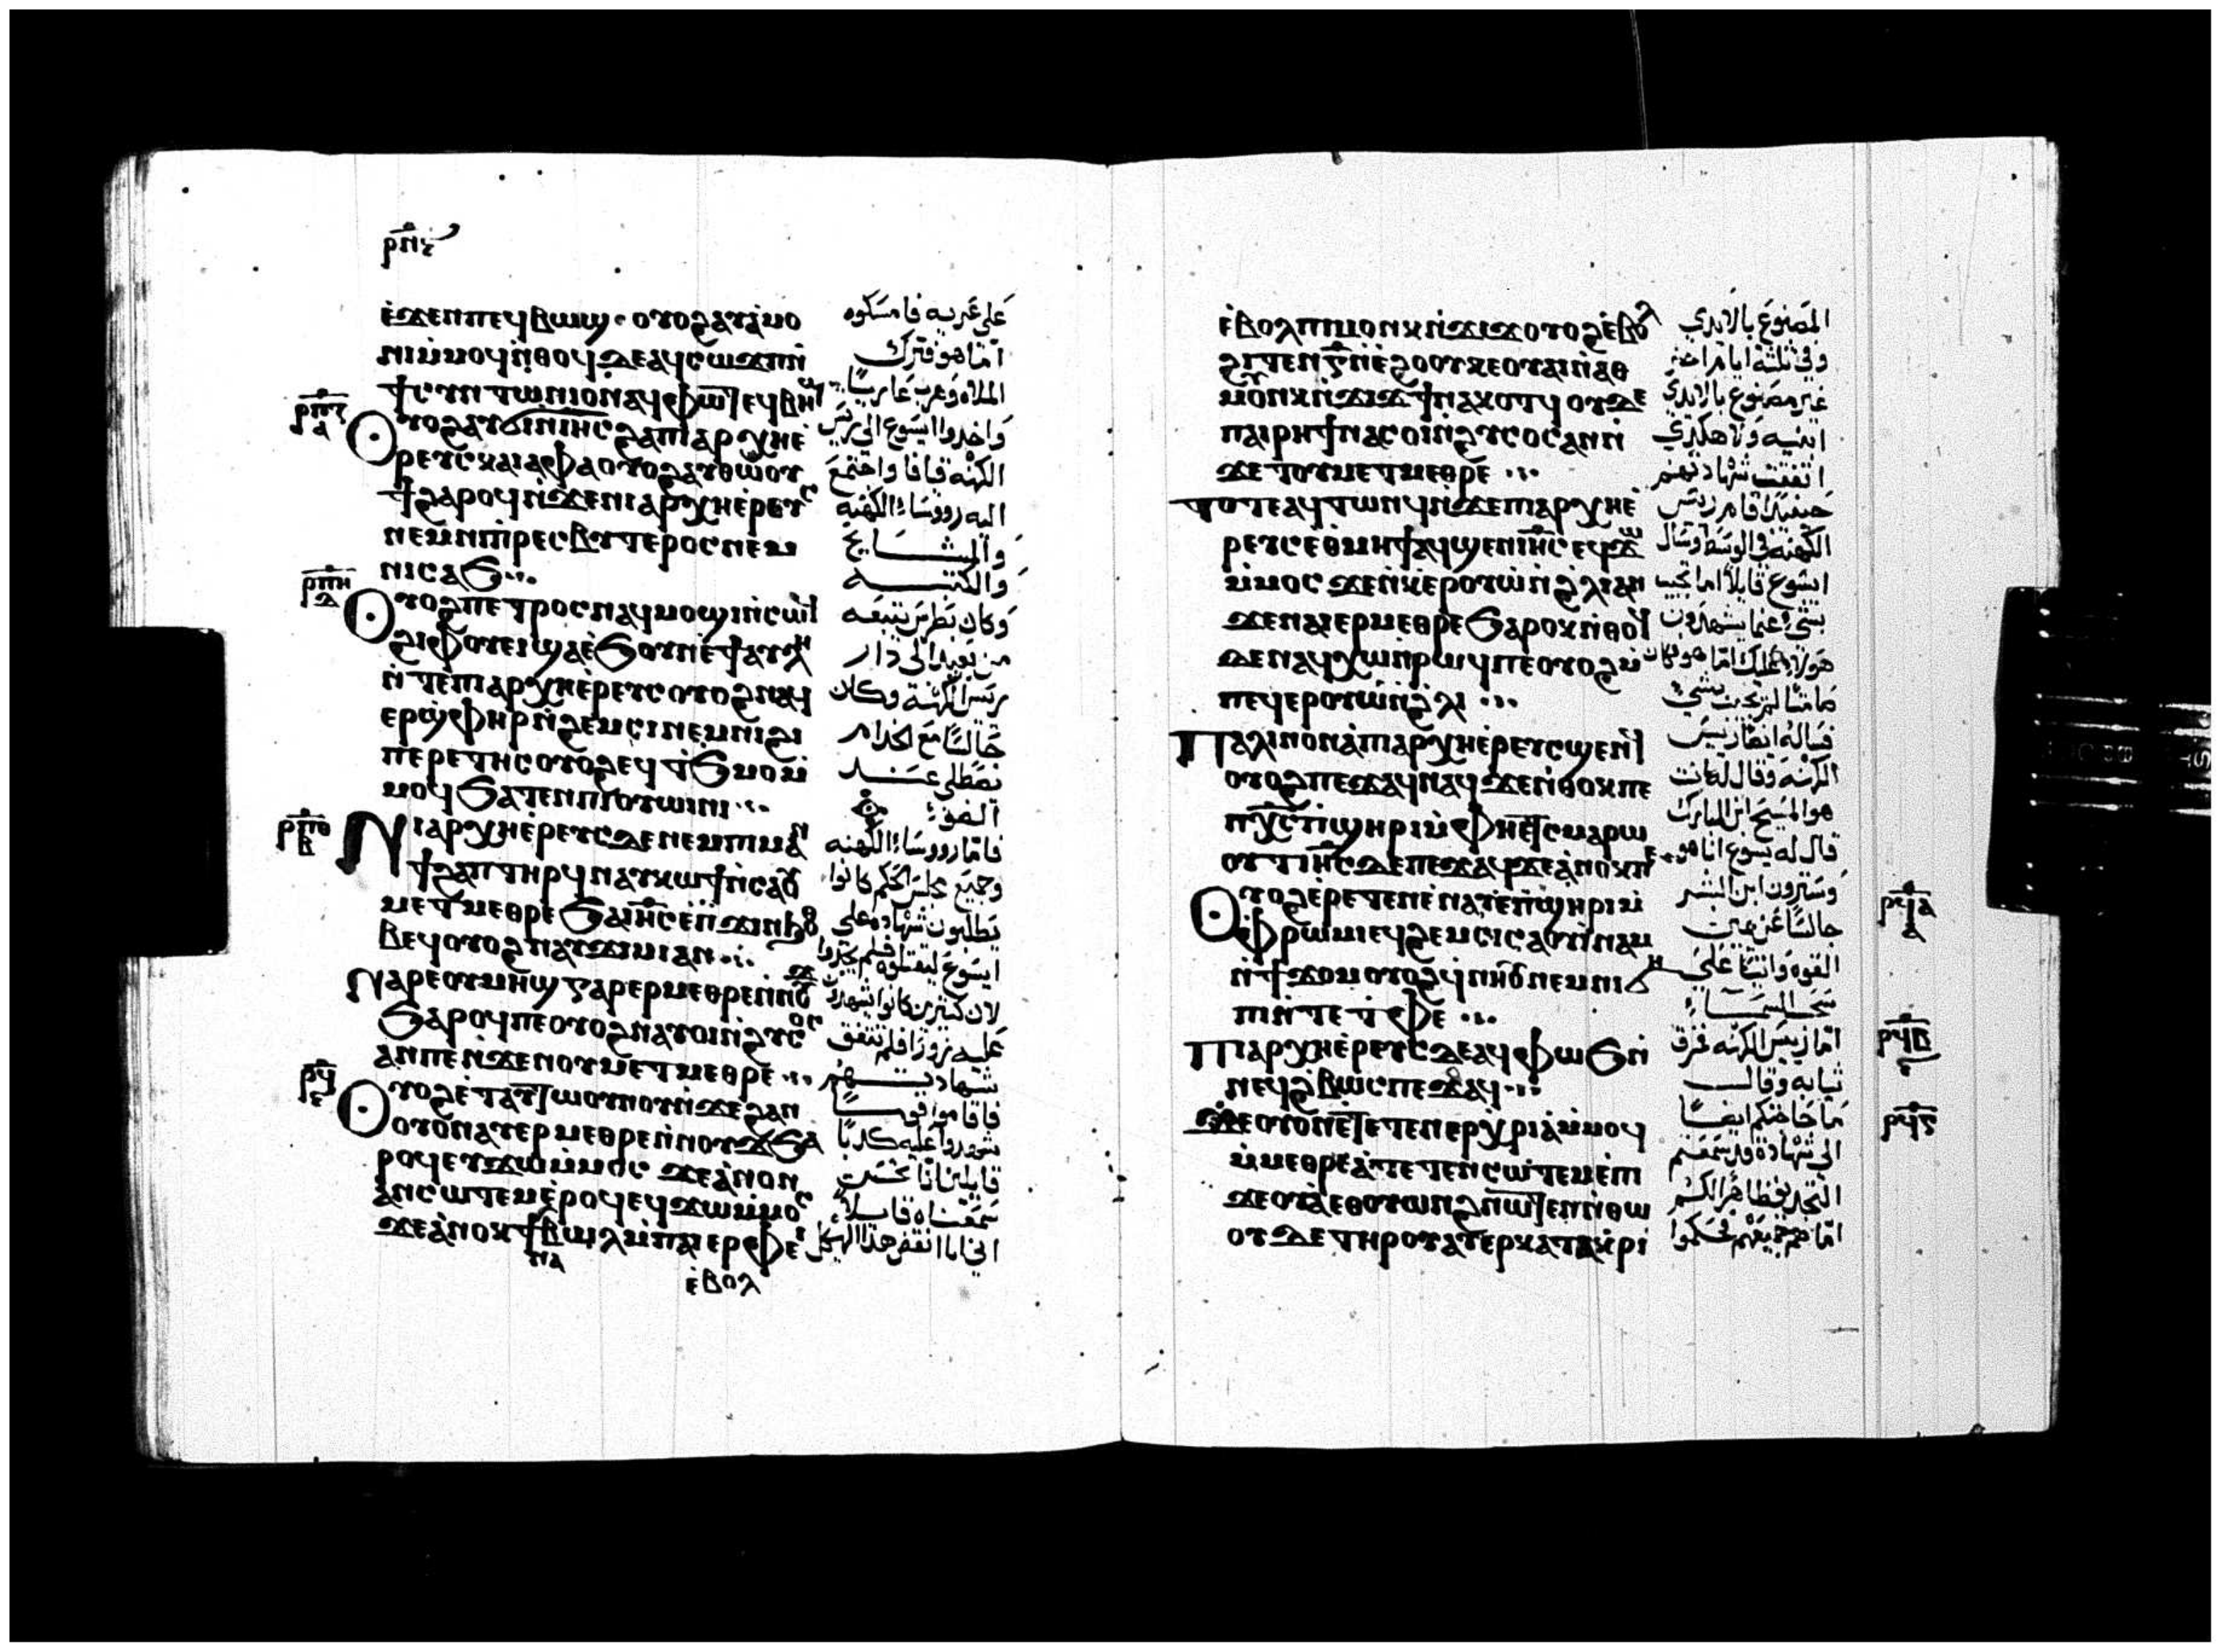 ⲣⲡⲋ
ⲉ̀ϫⲉⲛⲡⲉϥⲃⲱϣ · ⲟⲩⲟϩⲁⲩⲁ̀ⲙⲟ
ⲛⲓⲙ̀ⲙⲟϥⲛ̀ⲑⲟϥⲇⲉⲁϥⲥⲱϫⲡⲛ̀
ϯⲥⲩⲛⲧⲱⲛⲓⲟⲛⲁϥⲫⲱⲧ ⲉϥⲃⲏϣ
ⲣⲡⲍ
ⲁ
ⲟⲩⲟϩⲁⲩϭⲓⲛⲓⲏⲥϩⲁⲡⲓⲁⲣⲭⲏⲉ̀
ⲣⲉⲩⲥⲕⲁⲓⲁⲫⲁⲟⲩⲟϩⲁⲩⲑⲱⲟⲩ
ϯϩⲁⲣⲟϥⲛ̀ϫⲉⲛⲓⲁⲣⲭⲏⲉ̀ⲣⲉⲩⲥ
ⲛⲉⲙⲛⲓⲡ̀ⲣⲉⲥⲃⲩⲧⲉⲣⲟⲥⲛⲉⲙ
ⲛⲓⲥⲁϧ ⁘
ⲣⲡⲏ
ⲇ
ⲟⲩⲟϩⲡⲉⲧⲣⲟⲥⲛⲁϥⲙⲟϣⲓⲛ̀ⲥⲱϥ
ϩⲓⲫⲟⲩⲉⲓϣⲁⲉ̀ϧⲟⲩⲛⲉ̀ϯⲁⲩⲗⲏ
ⲛ̀ⲧⲉⲡⲓⲁⲣⲭⲏⲉ̀ⲣⲉⲩⲥⲟⲩⲟϩⲛⲁϥ
ⲉⲣϣ̀ⲫⲏⲣⲛ̀ϩⲉⲙⲥⲓⲛⲉⲙⲛⲓϩⲓ
ⲡⲉⲣⲉⲧⲏⲥⲟⲩⲟϩⲉϥϯϧⲙⲟⲙ̀
ⲙⲟϥϧⲁⲧⲉⲛⲡⲓⲟⲩⲱⲓⲛⲓ ⁘
ⲣⲡⲑ
ⲃ
ⲛⲓⲁⲣⲭⲏⲉ̀ⲣⲉⲩⲥⲇⲉⲛⲉⲙⲡⲓⲙⲁⲛ̀
ϯϩⲁⲡⲧⲏⲣϥⲛⲁⲩⲕⲱϯⲛ̀ⲥⲁⲟⲩ
ⲙⲉⲧⲙⲉⲑⲣⲉϧⲁⲓⲏⲥⲉⲡ̀ϫⲓⲛϧⲟ
ⲃⲉϥⲟⲩⲟϩⲛⲁⲩϫⲓⲙⲓⲁⲛ ⁘
ⲛⲁⲣⲉⲟⲩⲙⲏϣⲅⲁⲣⲉⲣⲙⲉⲑⲣⲉⲛ̀ⲛⲟⲩϫ
ϧⲁⲣⲟϥⲡⲉⲟⲩⲟϩⲛⲁⲩⲟⲓⲛ̀ϩⲩⲥⲟⲥ
ⲁⲛⲡⲉⲛ̀ϫⲉⲛⲟⲩⲙⲉⲧⲙⲉⲑⲣⲉ ⁘
ⲣϥ
ⲋ
ⲟⲩⲟϩⲉ̀ⲧⲁⲩⲧⲱⲟⲩⲛⲟⲩⲛ̀ϫⲉϩⲁⲛ
ⲟⲩⲟⲛⲁⲩⲉⲣⲙⲉⲑⲣⲉⲛ̀ⲛⲟⲩϫϧⲁ
ⲣⲟϥⲉⲩϫⲱⲙ̀ⲙⲟⲥ ϫⲉⲁ̀ⲛⲟⲛ
ⲁ̀ⲛⲥⲱⲧⲉⲙⲉ̀ⲣⲟϥⲉϥϫⲱⲙ̀ⲙⲟⲥ
ϫⲉⲁ̀ⲛⲟⲕϯⲛⲁⲃⲱⲗⲙ̀ⲡⲁⲓⲉⲣⲫⲉⲓ
ⲉ̀ⲃⲟⲗ
على عريه فامسكوه
اما هو فترك
الملاه وهرب عاريا
واخدوا ايسوع الى ريس
الكهنه قيافا واجتمع
اليه رووساء الكهنه
والمشايخ
والكتبه
وكان بطرس يتبعه
من بعيد الى دار
ريس الكهنة وكان
جالسا مع الخدام
يصطلي عند
الضو
فاما رووساء الكهنه
وجميع مجلس الحكم كانوا
يطلبون شهاده على
ايسوع ليقتلوه فلم يجدوا
لان كثيرين كانوا يشهدون
عليه زورا فلم تتفق
شهادتهم
فاقاموا قوما
شهدوا عليه كدبا
قايلين اننا نحن
سمعناه قايلا
اني انا انقض هذا الهيكل
ⲉ̀ⲃⲟⲗⲡⲓⲙⲟⲛⲕⲛ̀ϫⲓϫⲟⲩⲟϩⲉ̀ⲃⲟⲗ
ϩⲓⲧⲉⲛⲅ̅ⲛ̀ⲉ̀ϩⲟⲟⲩⲕⲉⲟⲩⲁⲓⲛ̀ⲁⲑ
ⲙⲟⲩⲛⲕⲛ̀ϫⲓϫϯⲛⲁⲕⲟⲧϥⲟⲩⲇⲉ
ⲡⲁⲓⲣⲏϯⲛⲁⲥⲟⲓⲛ̀ϩⲩⲥⲟⲥⲁⲛⲛ̀
ϫⲉⲧⲟⲩⲙⲉⲧⲙⲉⲑⲣⲉ ⁘
ⲧⲟⲧⲉⲁϥⲧⲱⲛϥⲛ̀ϫⲉⲡⲓⲁⲣⲭⲏⲉ̀
ⲣⲉⲩⲥⲉⲑⲙⲏϯⲁϥϣⲉⲛⲓⲏⲥⲉϥϫⲱ
ⲙ̀ⲙⲟⲥ ϫⲉⲛ̀ⲕⲉⲣⲟⲩⲱ̀ⲛ̀ϩ̀ⲗⲓⲁⲛ
ϫⲉⲛⲁⲓⲉⲣⲙⲉⲑⲣⲉϧⲁⲣⲟⲕⲛ̀ⲑⲟϥ
ⲇⲉⲛⲁϥⲭⲱⲛ̀ⲣⲱϥⲡⲉⲟⲩⲟϩⲙ̀
ⲡⲉϥⲉⲣⲟⲩⲱ̀ⲛ̀ϩ̀ⲗⲓ ⁘
ⲡⲁⲗⲓⲛⲟⲛⲁ̀ⲡⲓⲁⲣⲭⲏⲉ̀ⲣⲉⲩⲥϣⲉⲛϥ
ⲟⲩⲟϩⲡⲉϫⲁϥⲛⲁϥϫⲉⲛ̀ⲑⲟⲕⲡⲉ
ⲡⲭⲥⲡ̀ϣⲏⲣⲓⲙ̀ⲫⲏⲉⲧⲥⲙⲁⲣⲱ
ⲟⲩⲧⲓⲏⲥⲇⲉⲡⲉϫⲁϥϫⲉⲁ̀ⲛⲟⲕⲡⲉ
ⲟⲩⲟϩⲉ̀ⲣⲉⲧⲉⲛⲉ̀ⲛⲁⲩⲉ̀ⲡ̀ϣⲏⲣⲓⲙ̀
ⲫⲣⲱⲙⲓⲉϥϩⲉⲙⲥⲓⲥⲁⲟⲩⲓ̀ⲛⲁⲙ
ⲛ̀ϯϫⲟⲙⲟⲩⲟϩϥⲛⲏⲟⲩⲛⲉⲙⲛⲓϭⲏ
ⲡⲓⲛ̀ⲧⲉⲧ̀ⲫⲉ ⁘
ⲡⲓⲁⲣⲭⲏⲉ̀ⲣⲉⲩⲥⲇⲉⲁϥⲫⲱϧⲛ̀
ⲛⲉϥϩ̀ⲃⲱⲥⲡⲉϫⲁϥ ⁘
ϫⲉⲟⲩⲟⲛⲉ̀ⲧⲉⲧⲉⲛⲉⲣⲭⲣⲓⲁⲙ̀ⲙⲟϥ
ⲙ̀ⲙⲉⲑⲣⲉⲁ̀ⲧⲉⲧⲉⲛⲥⲱⲧⲉⲙⲉ̀ⲡⲓ
ϫⲉⲟⲩⲁ̀ⲉⲑⲟⲩⲱⲛϩⲛ̀ⲱⲧⲉⲛⲛ̀ⲑⲱ
ⲟⲩⲇⲉⲧⲏⲣⲟⲩⲁⲩⲉⲣⲕⲁⲧⲁⲕⲣⲓ
المصنوع بالايدي
وفي ثلثة ايام اخر
غير مصنوع بالايدي
ابنيه ولا هكذي
اتفقت شهادتهم
حينيد قام ريس
الكهنه في الوسط وسال
ايسوع قايلا اما تجيب
بشيء عما يشهدون
هولاء عليك اما هو فكان
صامتا لم يجب بشي
فساله ايضا ريس
الكهنه وقال له انت
هو المسيح ابن المبارك
قال له يسوع انا هو
وسترون ابن البشر
جالسا عن يمين
القوه واتيا على
سحاب السماء
اما ريس الكهنه فمزق
ثيابه وقال
ما حاجتكم ايضا
الى شهادة قد سمعتم
التجديف ظاهرا لكم
اما هم جميعهم فحكموا
ⲣϥⲁ
ⲁ
ⲣϥⲃ
ⲋ
ⲣϥⲅ